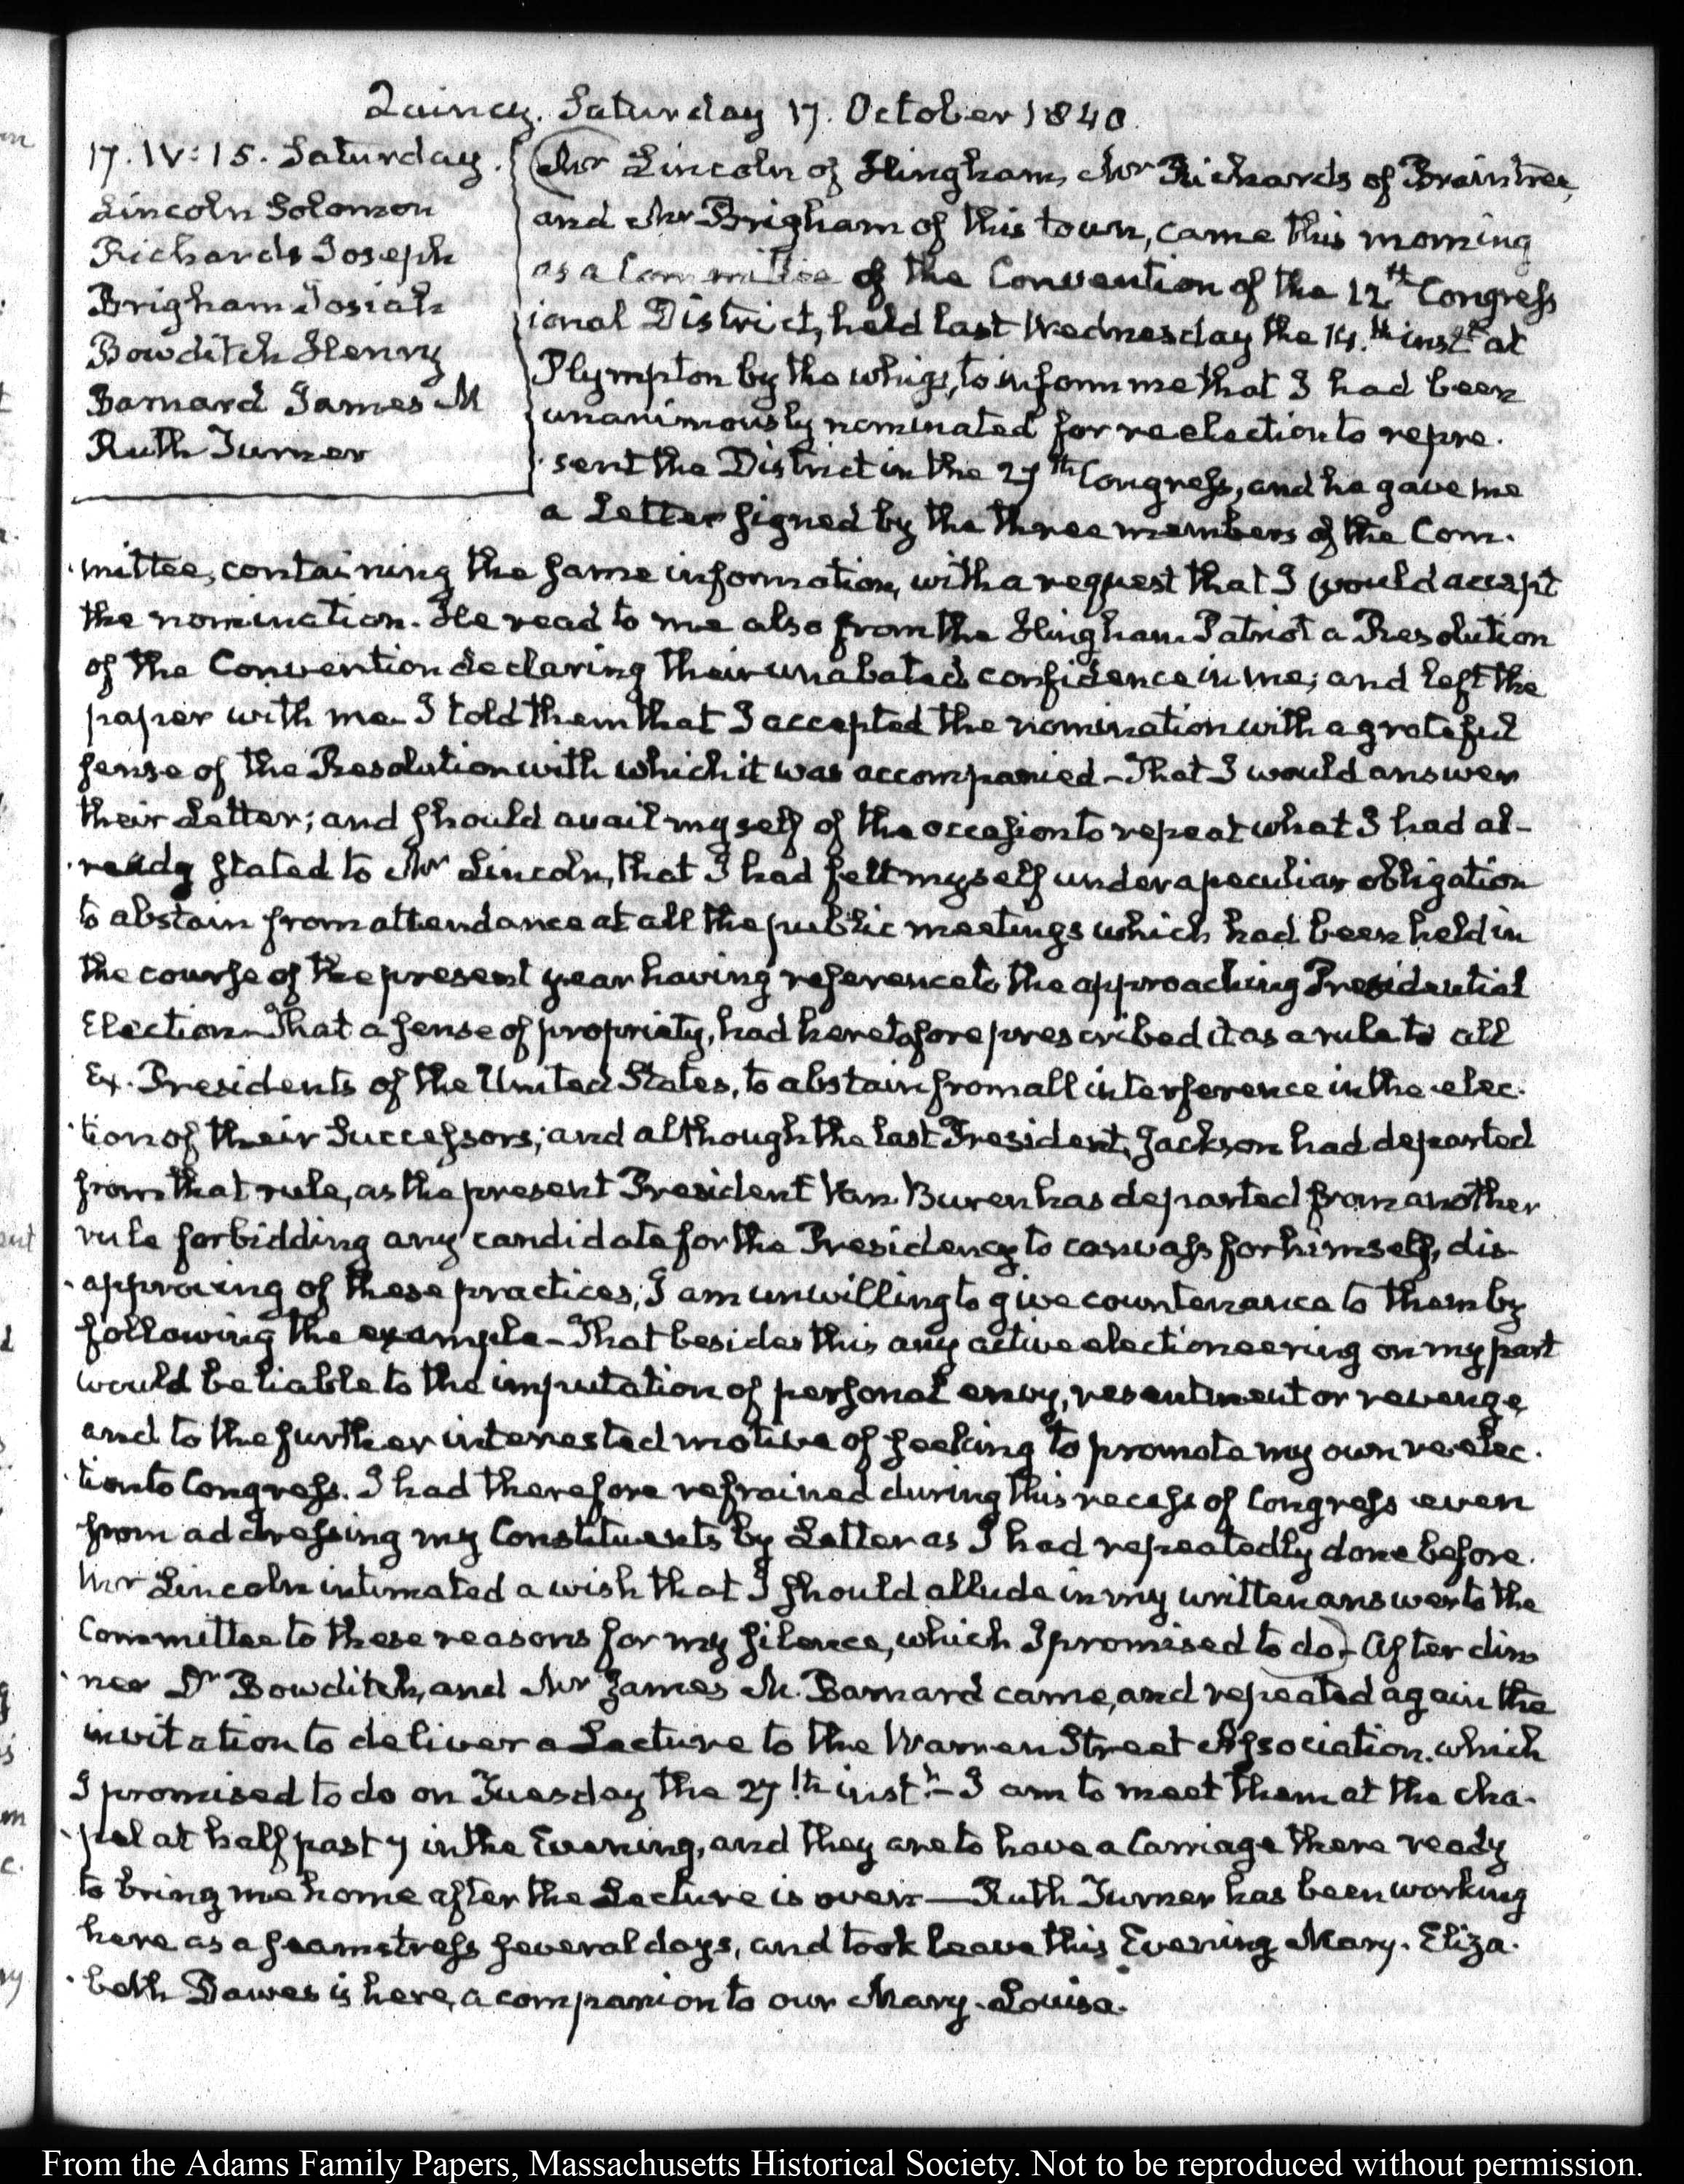 Quincy. Saturday 17. October 1840.
17. IV: 15. Saturday.
Lincoln Solomon
Richards Joseph
Brigham Josiah
Bowditch Henry
Barnard James M
Ruth Turner
Mr Lincoln of Hingham, Mr Richards of Braintree,
and Mr Brigham of this town, came this morning
as a Committee of the Convention of the 12th Congress
ional District, held last Wednesday the 14th instt at
Plympton by the whigs, to inform me that I had been
unanimously nominated for reelection to repre-
sent the District in the 27th Congress, and he gave me
a Letter signed by the three members of the Com-
mittee, containing the same information, with a request that I would accept
the nomination. He read to me also from the Hingham Patriot a Resolution
of the Convention declaring their unabated confidence in me; and left the
paper with me. I told them that I accepted the nomination with a grateful
sense of the Resolution with which it was accompanied – That I would answer
their Letter; and should avail myself of the occasion to repeat what I had al-
ready stated to Mr Lincoln, that I had felt myself under a peculiar obligation
to abstain from attendance at all the public meetings which had been held in
the course of the present year having reference to the approaching Presidential
Election – That a sense of propriety, had heretofore prescribed it as a rule to all
Ex. Presidents of the United States, to abstain from all interference in the elec-
tion of their Successors; and although the last President, Jackson had departed
from that rule, as the present President Van Buren has departed from another
rule forbidding any candidate for the Presidency to canvass for himself, dis-
approving of these practices, I am unwilling to give countenance to them by
following the example – That besides this any active electioneering on my part
would be liable to the imputation of personal envy, resentment or revenge,
and to the further interested motive of seeking to promote my own re-elec-
tion to Congress. I had therefore refrained during this recess of Congress even
from addressing my Constituents by Letter as I had repeatedly done before.
Mr Lincoln intimated a wish that I should allude in my written answer to the
Committee to these reasons for my silence, which I promised to do – After din
ner Dr Bowditch, and Mr James M. Barnard came, and repeated again the
invitation to deliver a Lecture to the Warren Street Association. which
I promised to do on Tuesday the 27th instt – I am to meet them at the cha-
pel at half past 7 in the Evening, and they are to have a Carriage there ready
to bring me home after the Lecture is over — Ruth Turner has been working
here as a seamstress several days, and took leave this Evening. Mary. Eliza-
beth Dawes is here, a companion to our Mary-Louisa.
From the Adams Family Papers, Massachusetts Historical Society. Not to be reproduced without permission.